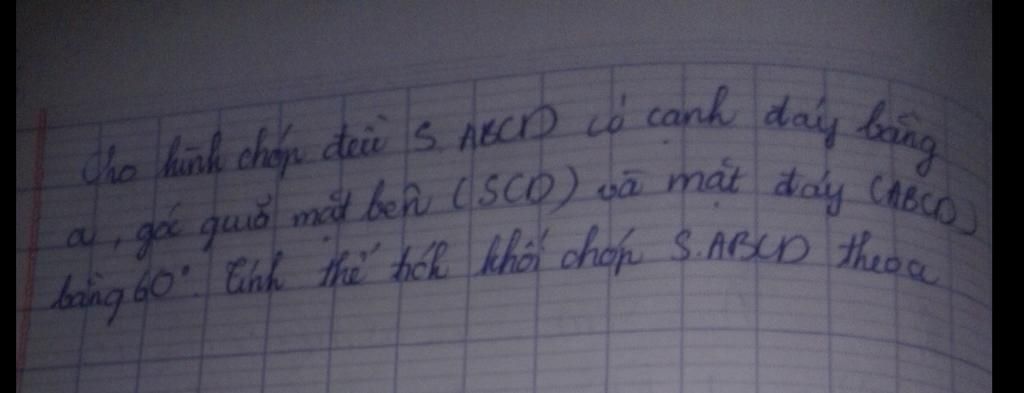 Cho hình chóp đều S.ABCD có cạnh đáy bằng
a, góc giữa mặt bên (SCD) và mặt đáy (ABCD)
bằng 60°. Tính thể tích khối chóp S.ABCD theo a